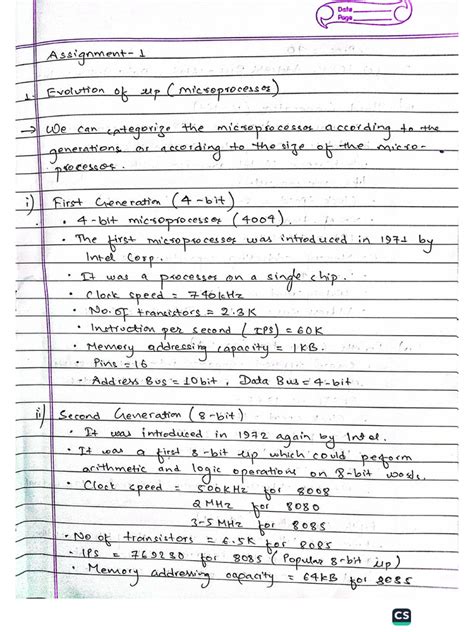 Date
Page
Assignment-1
1. Evolution of μp (microprocessor)
→ We can categorize the microprocessor according to the
generations or according to the size of the micro-
processor.
i) First Generation (4-bit)
• 4-bit microprocessor (4004).
• The first microprocessor was introduced in 1971 by
Intel Corp.
• It was a processor on a single chip.
• Clock speed = 740kHz
• No. of transistors = 2.3K
• Instruction per second (IPS) = 60K
• Memory addressing capacity = 1KB.
• Pins = 16
- Address Bus = 10bit, Data Bus = 4-bit.
ii) Second Generation (8-bit)
• It was introduced in 1972 again by Intel.
• It was a first 8-bit μp which could perform
arithmetic and logic operations on 8-bit words.
• Clock speed = 500kHz for 8008
2MHz for 8080
3-5MHz for 8085
• No of transistors = 6.5K for 8085
• IPS = 769230 for 8085 (Popular 8-bit μp)
• Memory addressing capacity = 64KB for 8085
CS